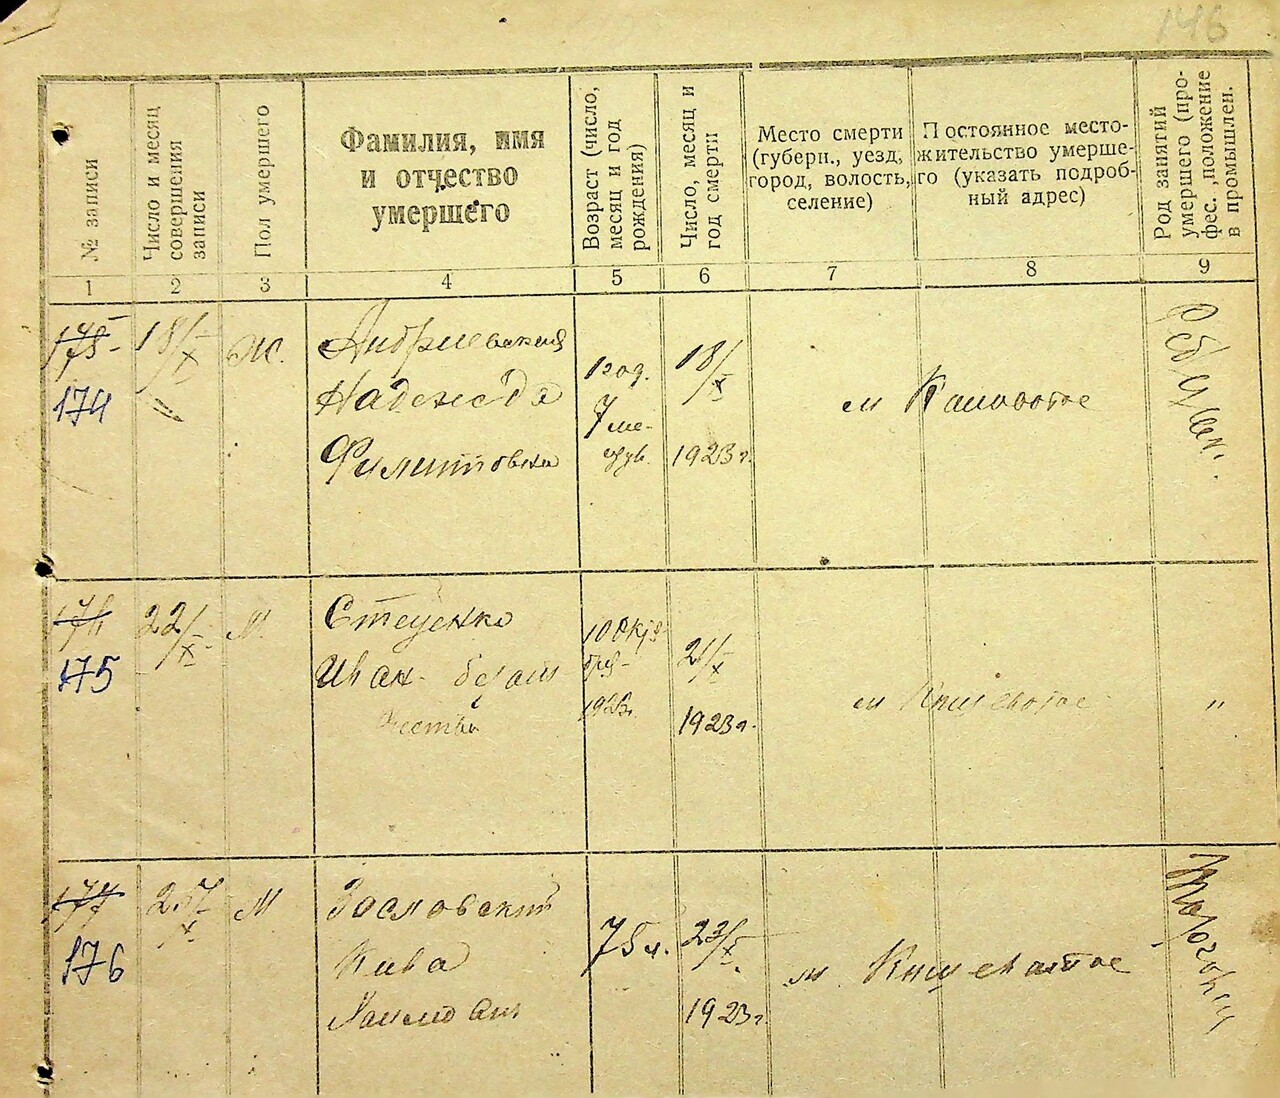 146
№ записи
Число и месяц
совершения
записи
Пол умершего
Фамилия, имя
и отчество
умершего
Возраст (число,
месяц и год
рождения)
Число, месяц и
год смерти
Место смерти
(губерн., уезд,
город, волость,
селение)
Постоянное место-
жительство умерше-
го (указать подроб-
ный адрес)
Род занятий
умершего (про-
фес., положение
в промышлен.
1 2 3 4 5 6 7 8 9
175
174
18/X
Ж.
Андриевская
Надежда
Филиповна
1 год.
7 ме-
18/X
1923 г.
м
176
175
22/X
М.
Стеценко
Иван без от
чества
10 Октя
бря
1923г.
21/X
1923 г.
м Кошеватое
"
177
176
25/X
М
Засловский
Кива
75 л.
23/X
1923 г
м. Кошеватое
Торговец